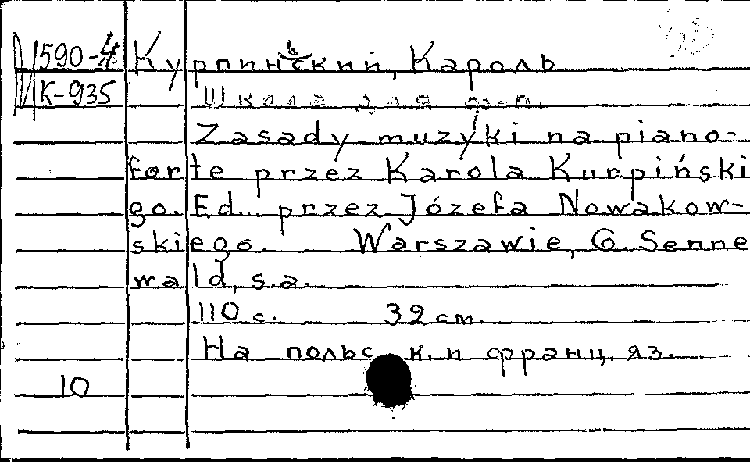 590-4 Курпиньский, Кароль
К-935 Школа для ф-п.
Zasady muzyki na piano-
forte przez Karola Kurpiński
go. Ed. przez Józefa Nowakow-
skiego. Warszawie, G. Senne
wald, s.a.
110 с. 32 см.
На польск. и франц. яз.
10